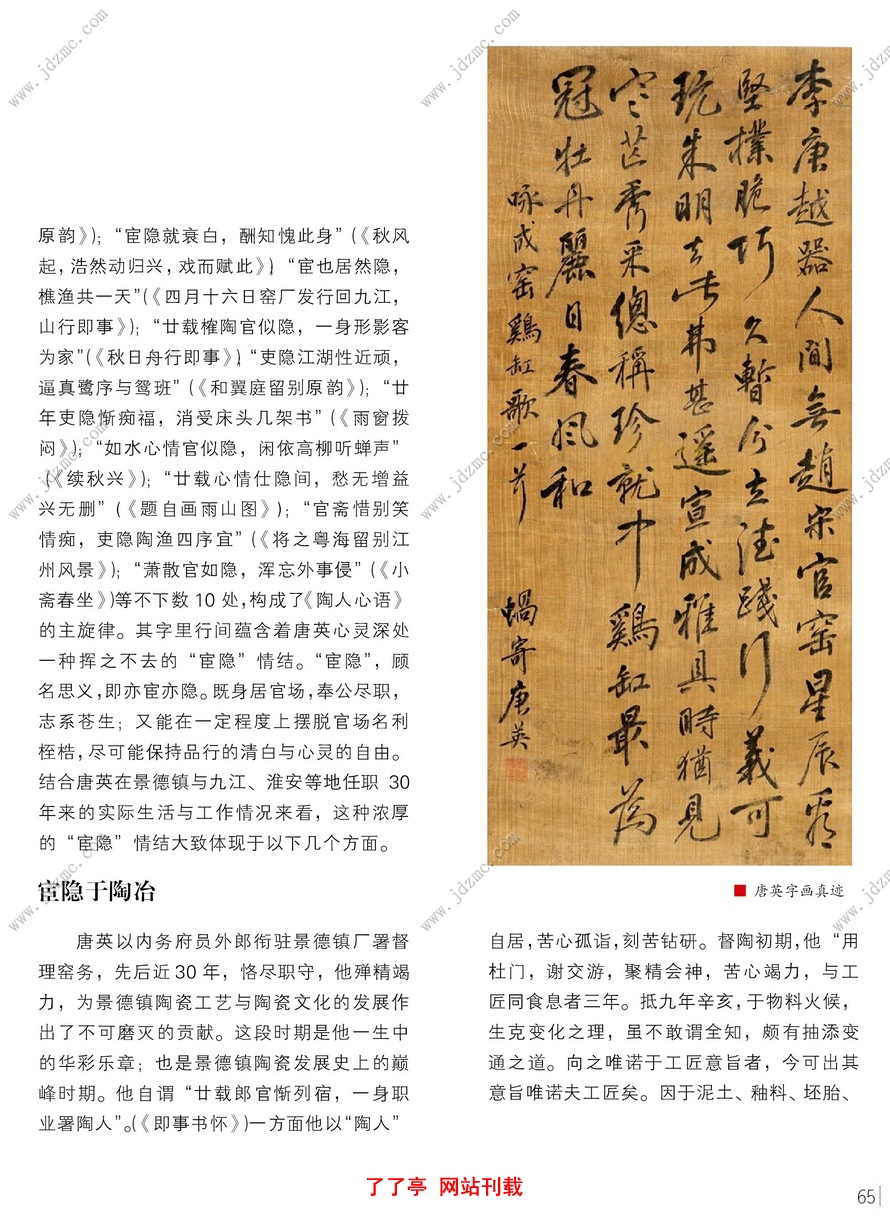 原韵》)；“宦隐就衰白，酬知愧此身”(《秋风
起，浩然动归兴，戏而赋此》)；“宦也居然隐，
樵渔共一天”(《四月十六日窑厂发行回九江，
山行即事》)；“廿载榷陶官似隐，一身形影客
为家”(《秋日舟行即事》)；“吏隐江湖性近顽，
逼真鹭序与鸳班”(《和翼庭留别原韵》)；“廿
年吏隐惭痴福，消受床头几架书”(《雨窗拨
闷》)；“如水心情官似隐，闲依高柳听蝉声”
(《续秋兴》)；“廿载心情仕隐间，愁无增益
兴无删”(《题自画雨山图》)；“官斋惜别笑
情痴，吏隐陶渔四序宜”(《将之粤海留别江
州风景》)；“萧散官如隐，浑忘外事侵”(《小
斋春坐》)等不下数10处，构成了《陶人心语》
的主旋律。其字里行间蕴含着唐英心灵深处
一种挥之不去的“宦隐”情结。“宦隐”，顾
名思义，即亦宦亦隐。既身居官场，奉公尽职，
志系苍生；又能在一定程度上摆脱官场名利
桎梏，尽可能保持品行的清白与心灵的自由。
结合唐英在景德镇与九江、淮安等地任职 30
年来的实际生活与工作情况来看，这种浓厚
的“宦隐”情结大致体现于以下几个方面。
宦隐于陶冶
唐英以内务府员外郎衔驻景德镇厂署督
理窑务，先后近30年，恪尽职守，他殚精竭
力，为景德镇陶瓷工艺与陶瓷文化的发展作
出了不可磨灭的贡献。这段时期是他一生中
的华彩乐章；也是景德镇陶瓷发展史上的巅
峰时期。他自谓“廿载郎官惭列宿，一身职
业署陶人”。(《即事书怀》)一方面他以“陶人”
李唐越器人間無趙宋官窑星辰看
堅撲脆巧久暫分立德踐行義可
玩朱明去此弗甚遥宣成雅具時猶見
寒芒秀采總稱珍就中鷄缸最為
冠牡丹麗日春風和
咏成窑鷄缸歌一首
蝸寄唐英
唐英字画真迹
自居，苦心孤诣，刻苦钻研。督陶初期，他“用
杜门，谢交游，聚精会神，苦心竭力，与工
匠同食息者三年。抵九年辛亥，于物料火候，
生克变化之理，虽不敢谓全知，颇有抽添变
通之道。向之唯诺于工匠意旨者，今可出其
意旨唯诺夫工匠矣。因于泥土、釉料、坯胎、
了了亭 网站刊载
65
www.jdzmc.com